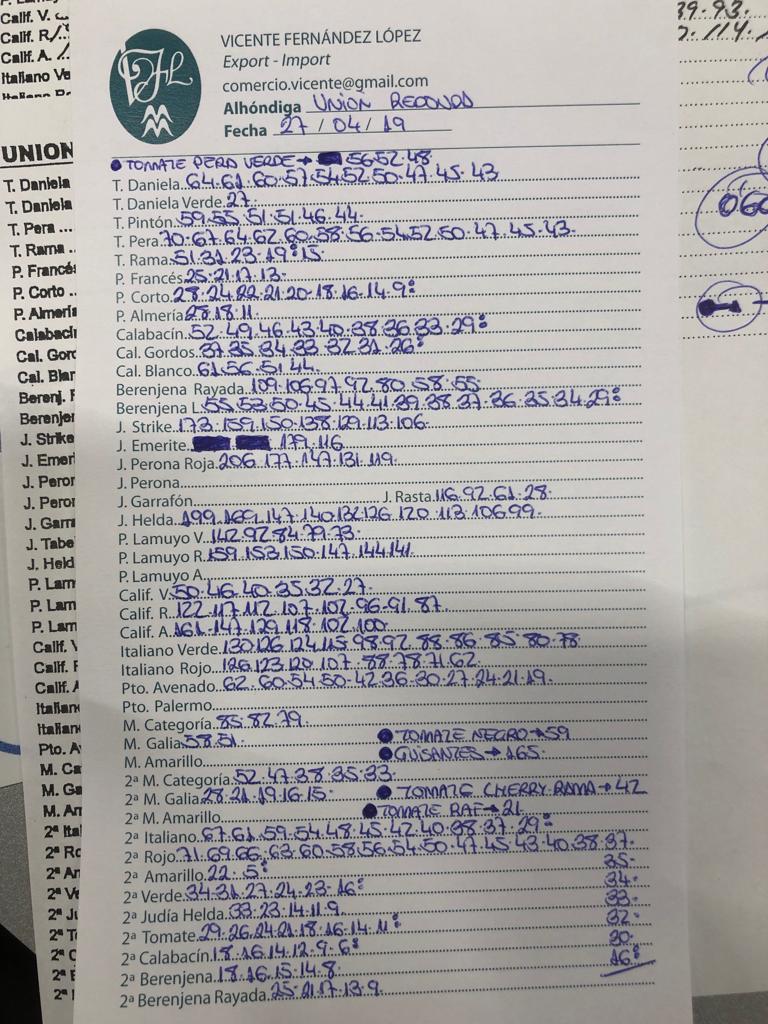 VICENTE FERNÁNDEZ LÓPEZ
Export - Import
comercio.vicente@gmail.com
Alhóndiga UNION REDONDA
Fecha 27/04/19
• TOMATE PERA VERDE→ 56·52·48
T. Daniela 64·61·60·57·54·52·50·47·45·43
T. Daniela Verde 27
T. Pintón 59·55·51·51·46·44
T. Pera 70·67·64·62·60·58·56·54·52·50·47·45·43
T. Rama 51·31·23·19·15
P. Francés 25·21·17·13
P. Corto 28·24·22·21·20·18·16·14·9
P. Almería 28·18·11
Calabacín 52·49·46·43·40·38·36·33·29
Cal. Gordos 37·35·34·33·32·31·26
Cal. Blanco 61·56·51·44
Berenjena Rayada 109·106·97·92·80·58·55
Berenjena L. 55·53·50·45·44·41·39·38·37·36·35·34·29
J. Strike 173·159·150·138·129·113·106
J. Emerite 179·116
J. Perona Roja 206·177·147·131·119
J. Perona
J. Garrafón J. Rasta 116·92·61·28
J. Helda 199·169·147·140·132·126·120·113·106·99
P. Lamuyo V. 142·92·84·79·73
P. Lamuyo R. 159·153·150·147·144·141
P. Lamuyo A.
Calif. V. 50·46·40·35·32·27
Calif. R. 122·117·112·107·102·96·91·87
Calif. A. 161·147·129·118·102·100
Italiano Verde 130·126·124·115·98·92·88·86·85·80·78
Italiano Rojo 126·123·120·107·88·78·71·62
Pto. Avenado 62·60·54·50·42·36·30·27·24·21·19
Pto. Palermo
M. Categoría 85·82·79
M. Galia 58·51 • TOMATE NEGRO→59
M. Amarillo • GUISANTES→165
2ª M. Categoría 52·47·38·35·33
2ª M. Galia 28·21·19·16·15 • TOMATE CHERRY RAMA→42
2ª M. Amarillo • TOMATE RAF→21
2ª Italiano 67·61·59·54·48·45·42·40·38·37·29
2ª Rojo 71·69·66·63·60·58·56·54·50·47·45·43·40·38·37
2ª Amarillo 22·5 35
2ª Verde 34·31·27·24·23·16 34
2ª Judía Helda 33·23·14·11·9 33
2ª Tomate 29·26·24·21·18·16·14·11 32
2ª Calabacín 18·16·14·12·9·6 30
2ª Berenjena 18·16·15·14·8 16
2ª Berenjena Rayada 25·21·17·13·9
Calif. V.
Calif. R
Calif. A.
Italiano Ve
UNION
T. Daniela
T. Daniela
T. Pera ...
T. Rama ..
P. Francés
P. Corto ..
P. Almería
Calabacín
Cal. Gord
Cal. Blan
Berenj. R
Berenjen
J. Strike
J. Emeri
J. Peron
J. Peror
J. Garra
J. Tabe
J. Held
P. Lam
P. Lam
P. Lam
Calif. V
Calif. R
Calif. A
Italian
Italian
Pto. A
M. Ca
M. Ga
M. An
2ª Ital
2ª Ro
2ª An
2ª Ve
2ª Ju
2ª T
2ª C